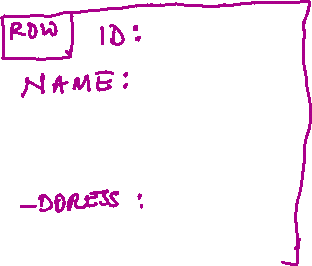 ROW ID:
NAME:
-DDRESS: